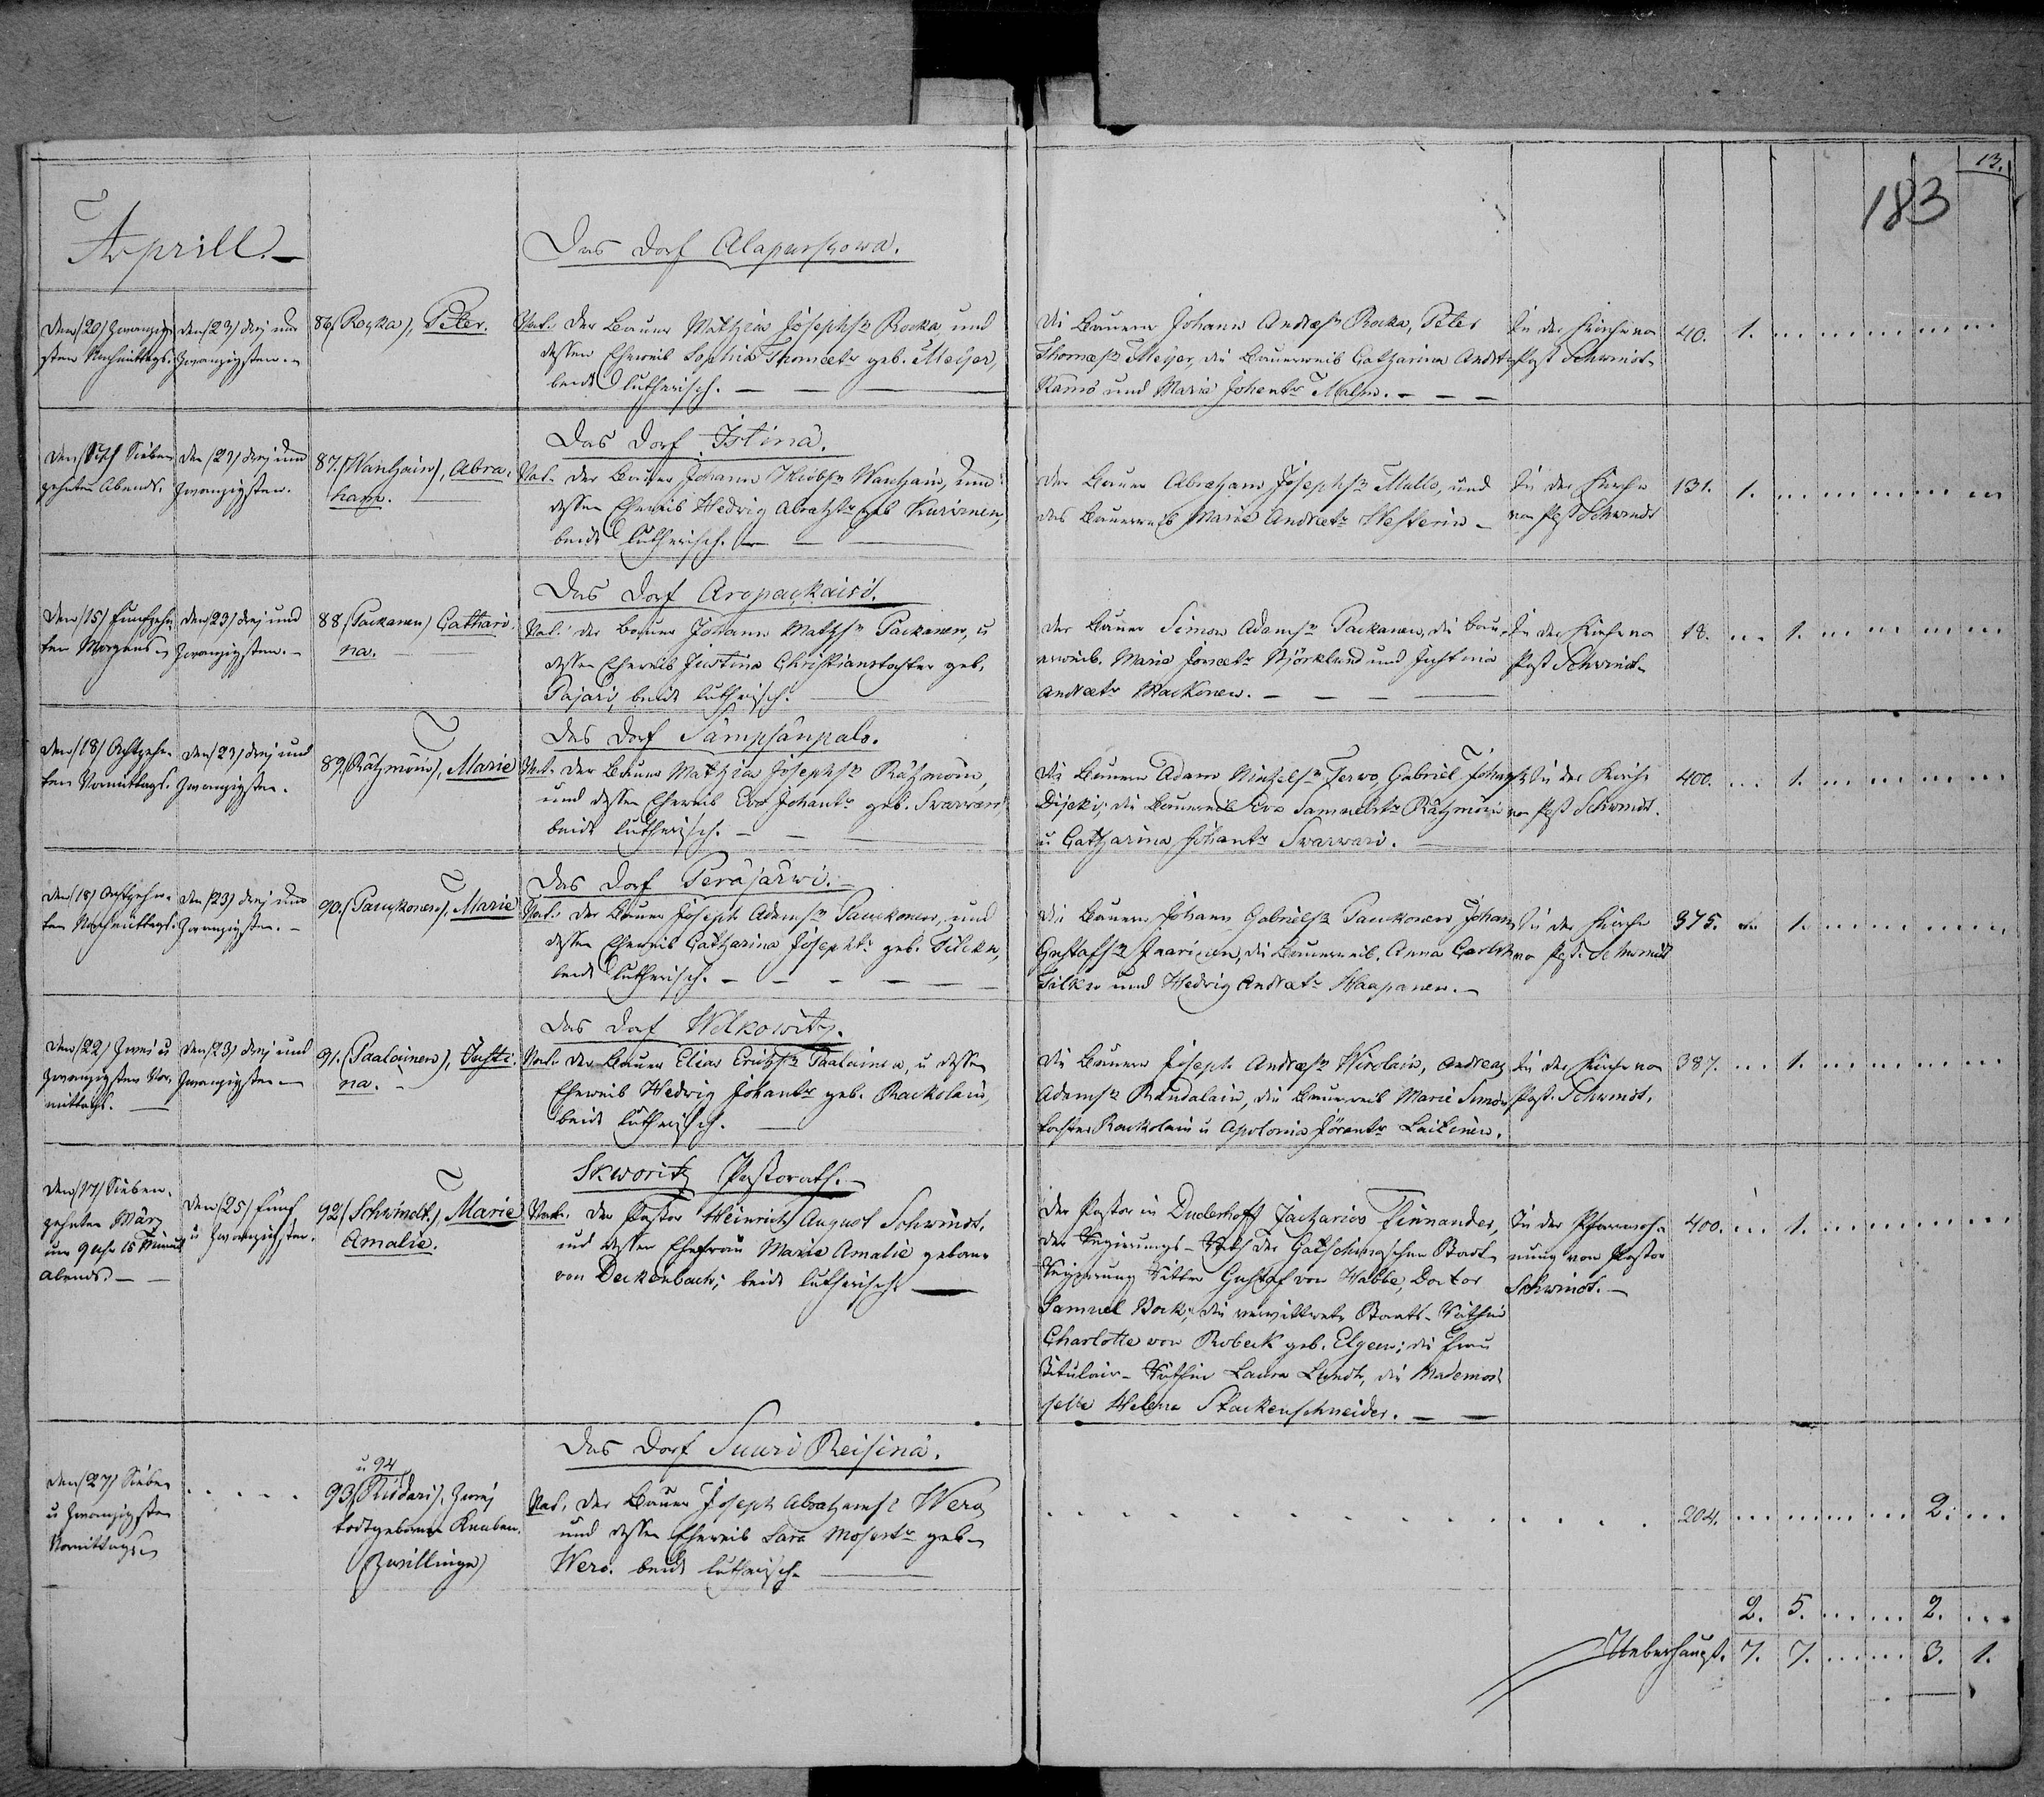 13.
183
Aprill.
Das Dorf Alapurskowa.
Den (20) zwanzig-
sten Nachmittags.
den (23) drei und
zwanzigsten.
86 (Rocka), Peter.
Vat. der Bauer Mathias Josephs. Rocka und
dessen Eheweib Sophia Thomaetr geb. Meyer,
beide lutherisch.
die Bauern Johann Andraes. Rocka, Peter
Thomas. Meyer, die Bauerweib Catharina Andraetr
Rämö und Maria Johantr Malm.
In der Kirche von
Past Schwindt
40. 1.
Das Dorf Istinä.
Den Sieben
zehnten Abends.
den (23) drei und
zwanzigsten.
87. (Wanhain), Abra-
ham.
Vat. der Bauer Johann Wanhain, und
dessen Eheweib Hedwig Abrahtr geb Kurvinen,
beide lutherisch.
der Bauer Abraham Josephs. Mullo, und
das Bauerweib Maria Andraetr Hesterin
In der Kirche
von Past Schwindt
131. 1.
Das Dorf Aropackaisi.
Den (15) funfzehn
ten Morgens
den (23) drei und
zwanzigsten.
88 (Packanen) Cathari-
na.
Vat. der Bauer Johann Maths. Packanen, u
dessen Eheweib Justina Christianstochter geb.
Pajari, beide lutherisch.
der Bauer Simon Adams. Packanen, die Bau-
erweib. Maria Björklund und Justina
Andraetr Mackonen.
In der Kirche von
Past Schwindt
18. 1.
Das Dorf Sämpsänpalo.
Den (18) Achtzehn-
ten Vormittags.
den (23) drei und
zwanzigsten.
89. (Rätzmöin), Marie
Vat. der Bauer Mathias Josephs. Rätzmöin,
und dessen Eheweib Eva Johantr geb. Swarwari,
beide lutherisch.
die Bauern Adam Michels. Terwo, Gabriel Johans.
die Bauerweib Eva Samuelstr Rätzmöin
u Catharina Johantr Swarwari.
In der Kirche
von Past Schwindt.
400. 1.
Das Dorf Peräjärwi.
Den (18) Achtzehn-
ten Nachmittags.
den (23) drei und
zwanzigsten.
90. (Pauckonen), Marie
Vat. der Bauer Joseph Adams. Pauckonen, und
dessen Eheweib Catharina Josephtr geb. Silcku,
beide lutherisch.
die Bauern Johann Gabriels. Pauckonen, Johann
Gustafs. Inarinen, die Bauerweib. Anna Carlstr
Silcku und Hedwig Andraetr Haapanen.
In der Kirche
von Past. Schwindt
375. 1.
Das Dorf Wilkowitz.
Den (22) zwei u
zwanzigsten Vor-
mittags.
den (23) drei und
zwanzigsten
91. (Paalainen), Justi-
na.
Vat. der Bauer Elias Erichs. Paalainen, u dessen
Eheweib Hedwig Johantr geb. Rackolain,
beide lutherisch.
die Bauern Joseph Andraes. Wirolain, Andreas
Adams. Randalain, die Bauerweib Marie Simons
tochter Rackolain u Apolonia Görantr Laitinen.
In der Kirche von
Past. Schwindt.
387. 1.
Skworitz Pastorath.
Den (17) Sieben-
zehnten März
um 9 Uhr 15 Minut
abends.
Den (25) fünf
u zwanzigsten.
92 (Schwindt.), Marie
Amalie.
Vat. der Pastor Heinrich August Schwindt.
und dessen Ehefrau Maria Amalie geborne
von Deckenbach; beide lutherisch.
der Pastor in Duderhoff Zacharias Finnander,
der Regierungs-Rath der Gatschinaschen Stadt-
Regierung Ritter Gustaf von Habbe, Doctor
Samuel Bock, die verwittwete Staats-Räthin
Charlotte von Robeck geb. Elgeen; die Frau
Titulair-Räthin Laura Lundt, die Mademoi
selle Helena Stackenschneider.
In der Pfarrwoh-
nung von Pastor
Schwindt.
400. 1.
Das Dorf Suuri Reisinä.
Den (27) Sieben
u zwanzigsten
Vormittags
u 94
93 (Ridari), Zwei
todtgeborene Knaben.
(Zwillinge)
Vat. der Bauer Joseph Abrahams. Wero
und dessen Eheweib Sara Mosestr geb.
Wero. beide lutherisch.
204. 2.
2. 5. 2.
Ueberhaupt. 7. 7. 3. 1.